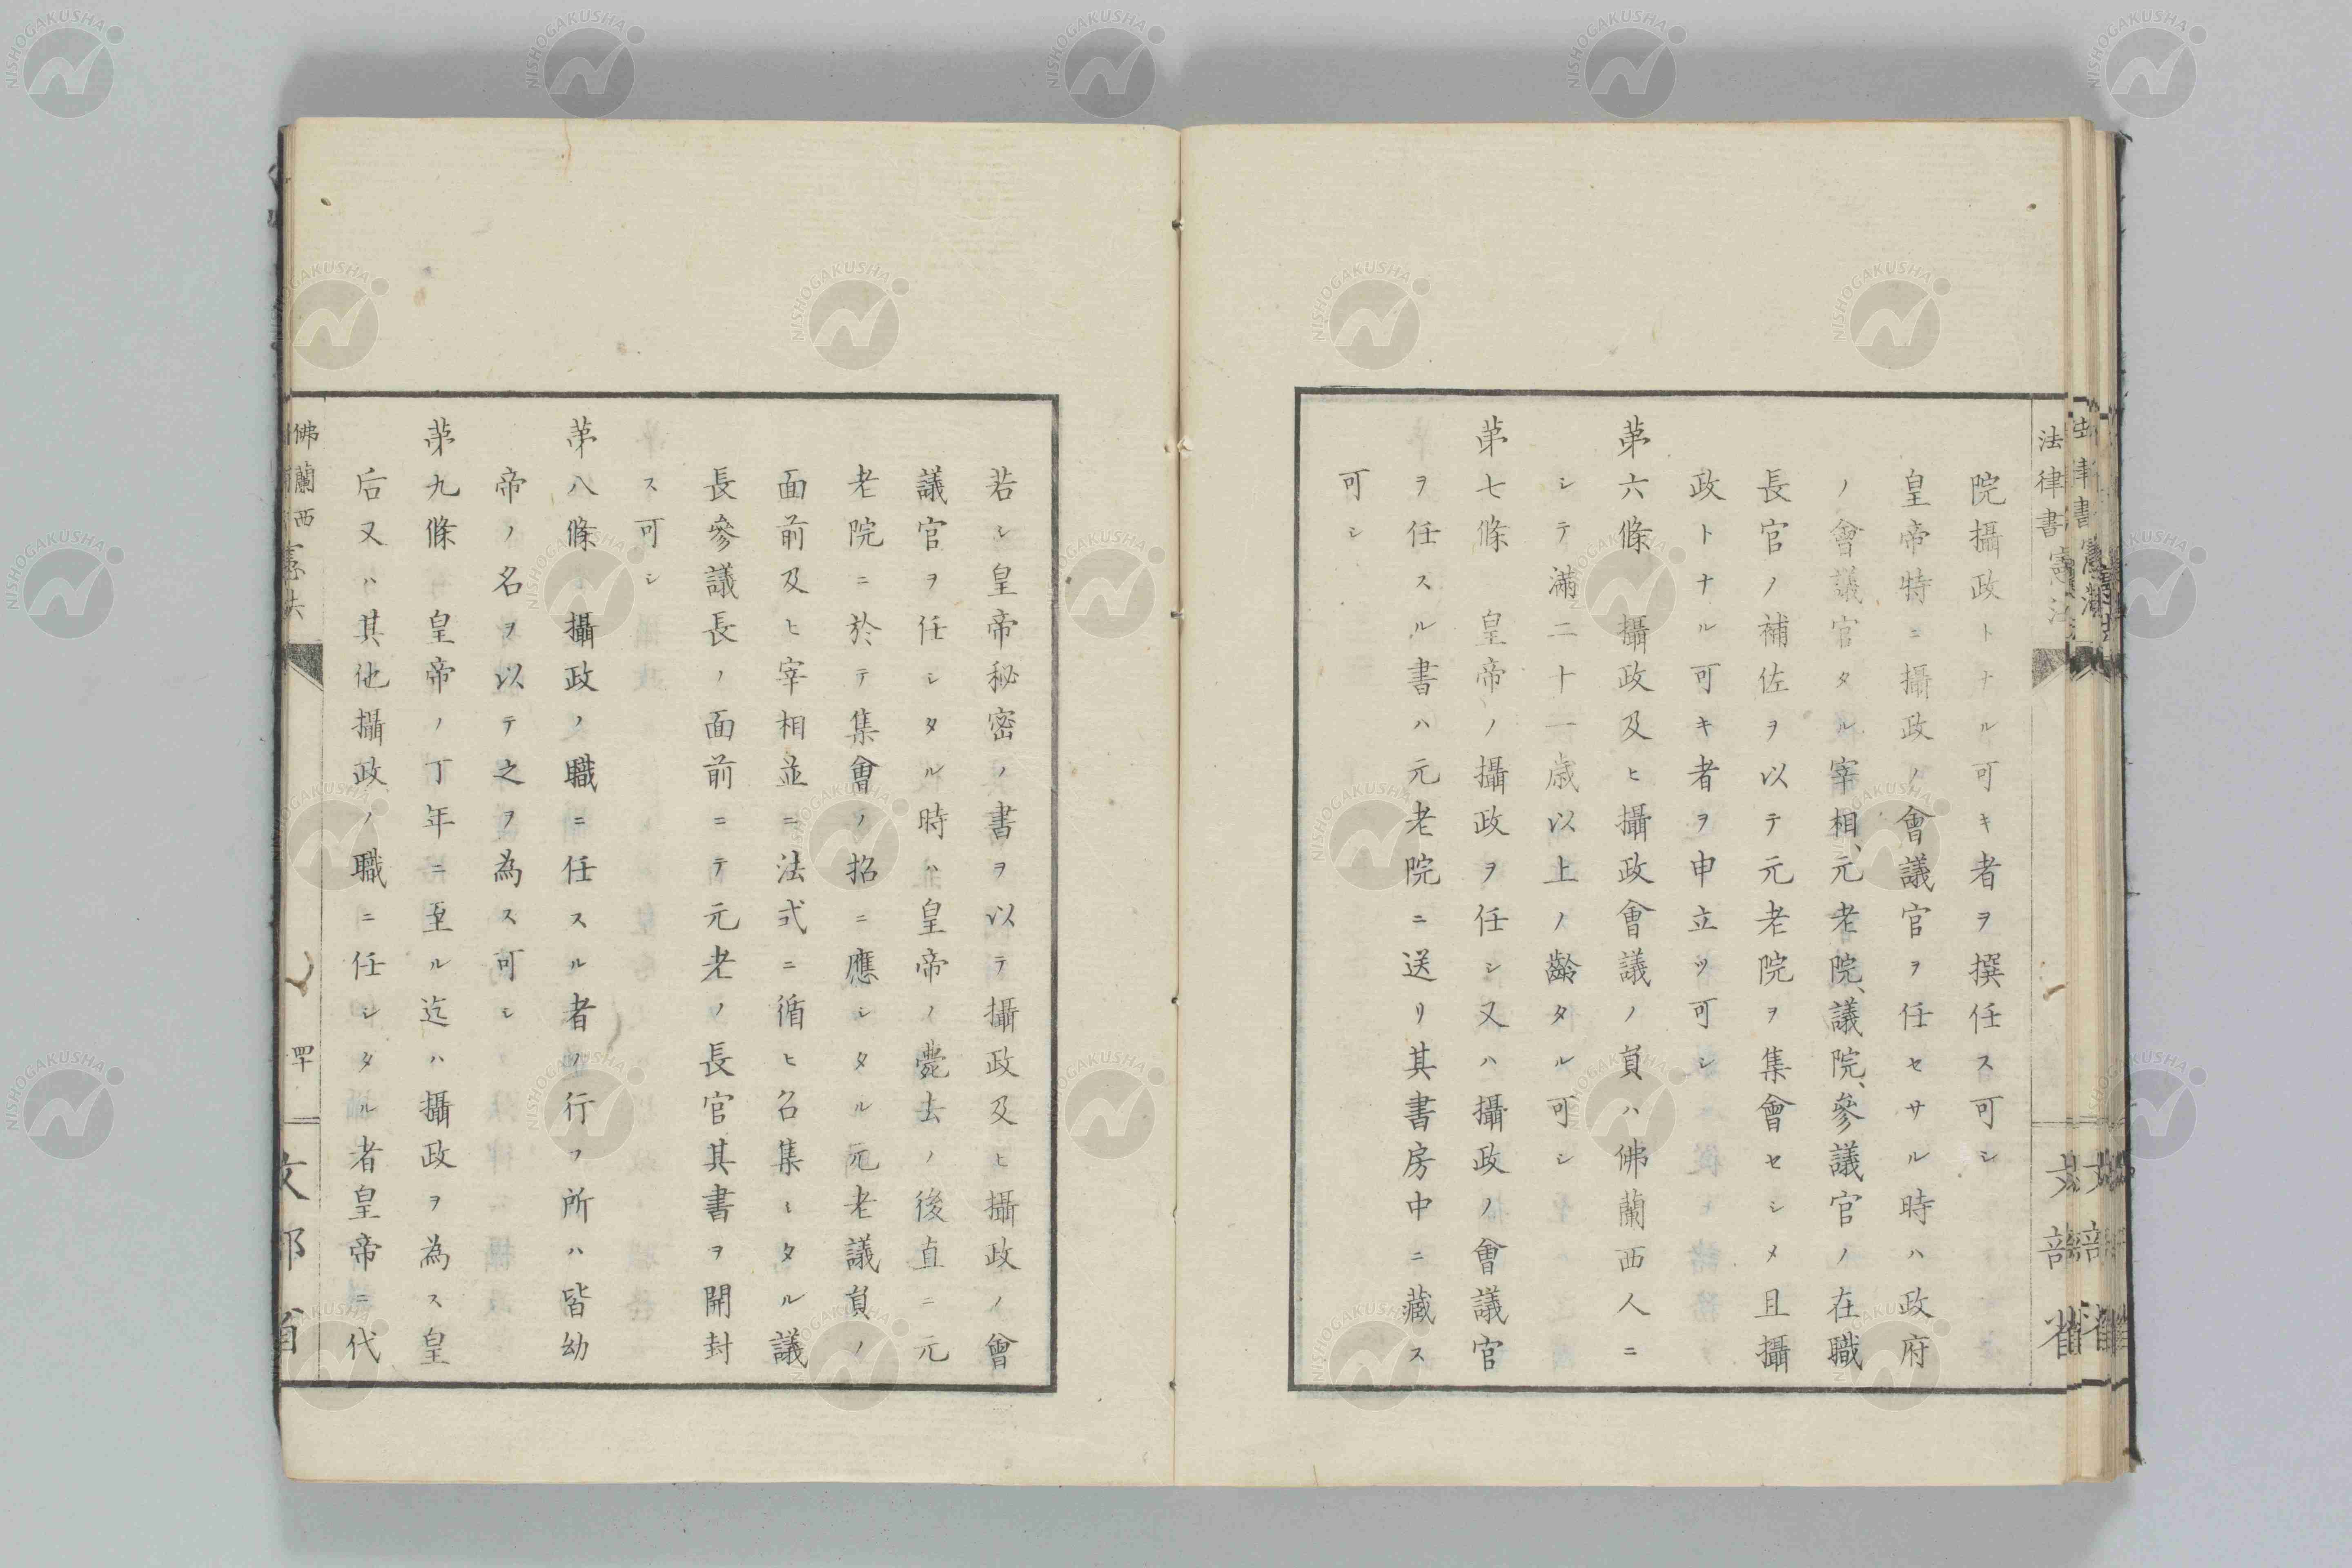 院攝政トナル可キ者ヲ撰任ス可シ
皇帝特ニ攝政ノ會議官ヲ任セサル時ハ政府
ノ會議官タル宰相、元老院、議院、參議官ノ在職
長官ノ補佐ヲ以テ元老院ヲ集會セシメ且攝
政トナル可キ者ヲ申立ツ可シ
苐六條　攝政及ヒ攝政會議ノ員ハ佛蘭西人ニ
シテ滿二十一歳以上ノ齡タル可シ
苐七條　皇帝ノ攝政ヲ任シ又ハ攝政ノ會議官
ヲ任スル書ハ元老院ニ送リ其書房中ニ藏ス
可シ
若シ皇帝秘密ノ書ヲ以テ攝政及ヒ攝政ノ會
議官ヲ任シタル時ハ皇帝ノ薨去ノ後直ニ元
老院ニ於テ集會ノ招ニ應シタル元老議員ノ
面前及ヒ宰相並ニ法式ニ循ヒ名集ミタル議
長參議長ノ面前ニテ元老ノ長官其書ヲ開封
ス可シ
苐八條　攝政ノ職ニ任スル者ノ行フ所ハ皆幼
帝ノ名ヲ以テ之ヲ為ス可シ
苐九條　皇帝ノ丁年ニ至ル迄ハ攝政ヲ為ス皇
后又ハ其他攝政ノ職ニ任シタル者皇帝ニ代
法律書 憲法
佛蘭西 憲法
文部省
NISHOGAKUSHA